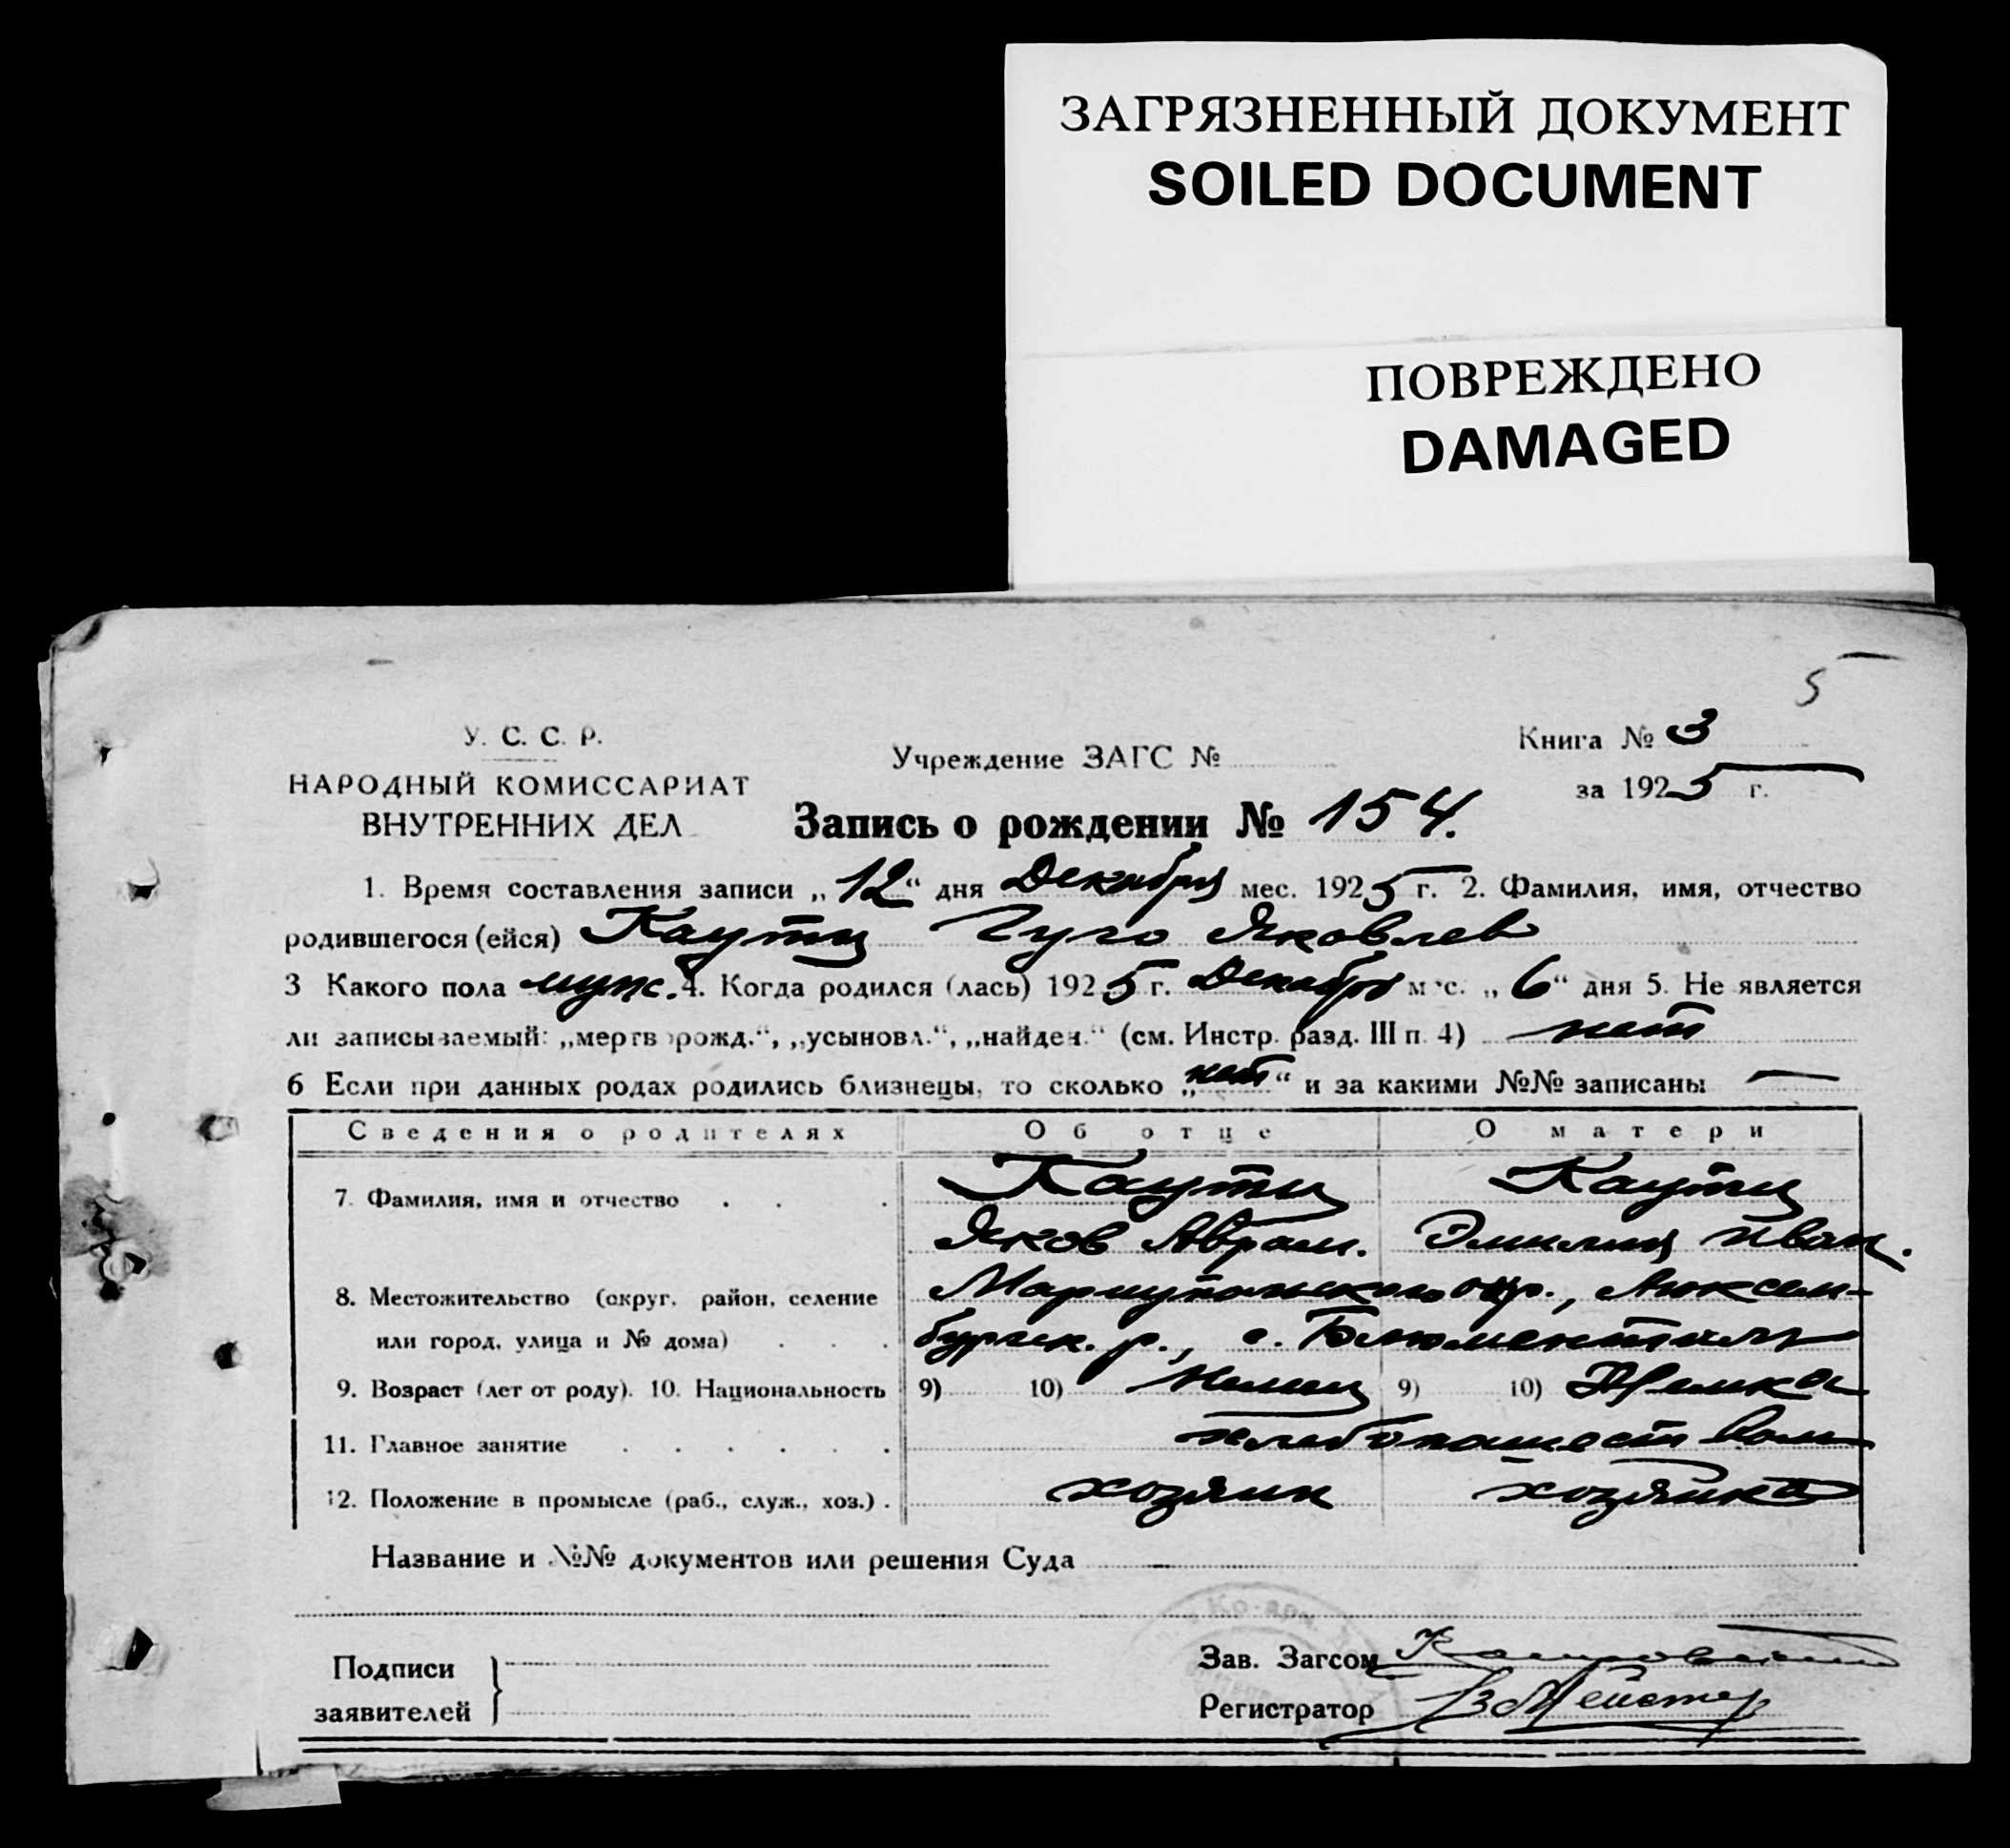 ЗАГРЯЗНЕННЫЙ ДОКУМЕНТ
SOILED DOCUMENT
ПОВРЕЖДЕНО
DAMAGED
5
У. С. С. Р.
НАРОДНЫЙ КОМИССАРИАТ
ВНУТРЕННИХ ДЕЛ
Учреждение ЗАГС №
Книга № 3
за 1925 г.
Запись о рождении № 154.
1. Время составления записи „12“ дня Декабря мес. 1925 г. 2. Фамилия, имя, отчество
родившегося (ейся) Каутц Гуго Яковлев
3 Какого пола муж. 4. Когда родился (лась) 1925 г. Декабря мес. „6“ дня 5. Не является
ли записываемый: „мертворожд.“, „усыновл.“, „найден.“ (см. Инстр. разд. III п. 4) нет
6 Если при данных родах родились близнецы, то сколько „нет“ и за какими №№ записаны —
Сведения о родителях Об отце О матери
7. Фамилия, имя и отчество . . . Каутц Каутц
Яков Абрам. Эмилия Иван.
8. Местожительство (округ, район, селение Мариупольского окр., Люксем-
или город, улица и № дома) . . . бургск. р., с. Блюменталь
9. Возраст (лет от роду). 10. Национальность 9) 10) Немец 9) 10) Немка
11. Главное занятие . . . . . . хлебопашеством
12. Положение в промысле (раб., служ., хоз.) . хозяин хозяйка
Название и №№ документов или решения Суда —
Подписи
заявителей
Зав. Загсом
Регистратор